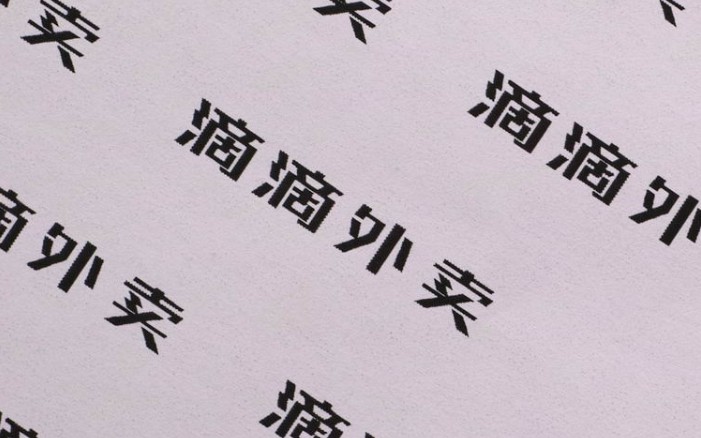 卖
卖
滴滴外卖
滴滴外
滴外卖
滴滴